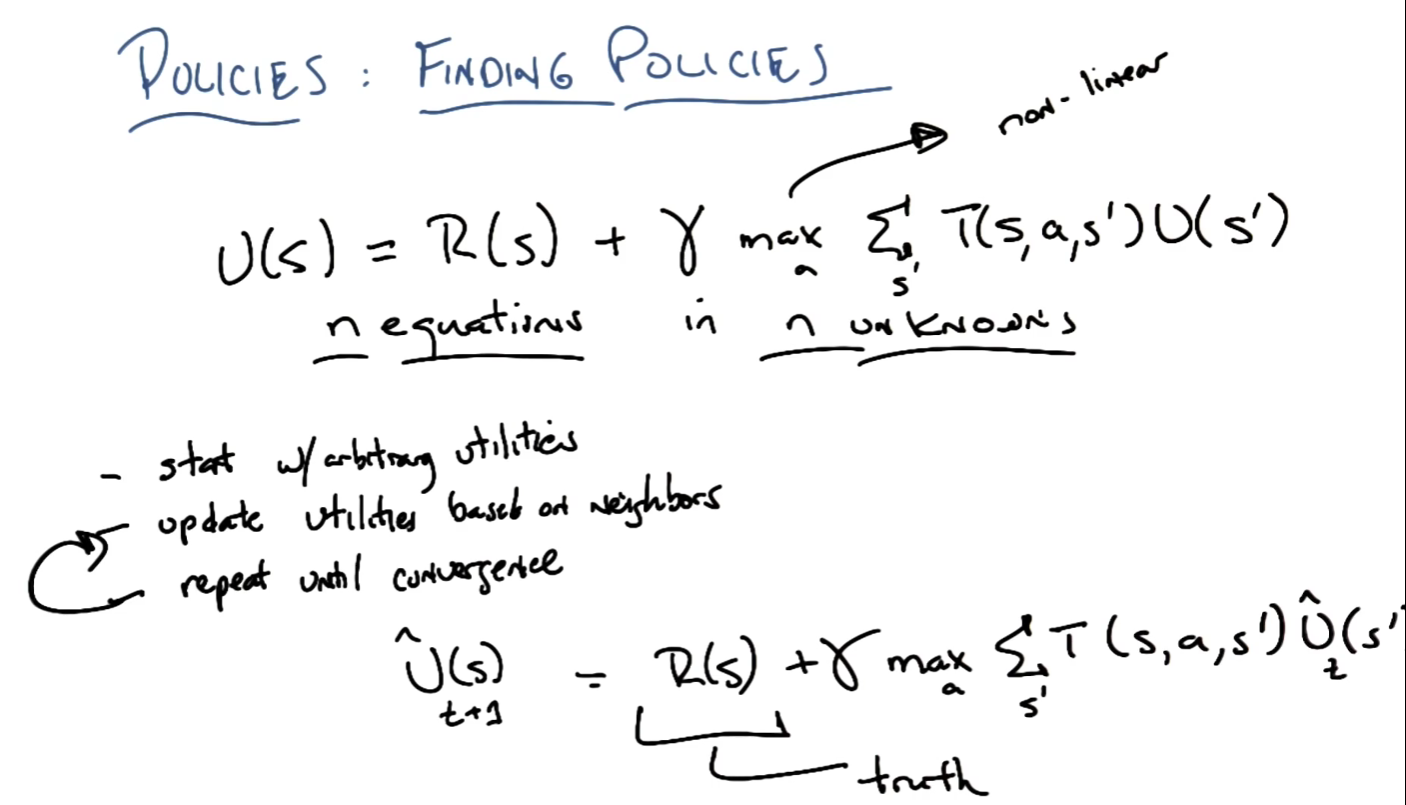 POLICIES : FINDING POLICIES
non-linear
U(s) = R(s) + γ max_a Σ_s' T(s,a,s')U(s')
n equations in n unknowns
- start w/ arbitrary utilities
- update utilities based on neighbors
- repeat until convergence
Û_t+1(s) = R(s) + γ max_a Σ_s' T(s,a,s') Û_t(s'
truth